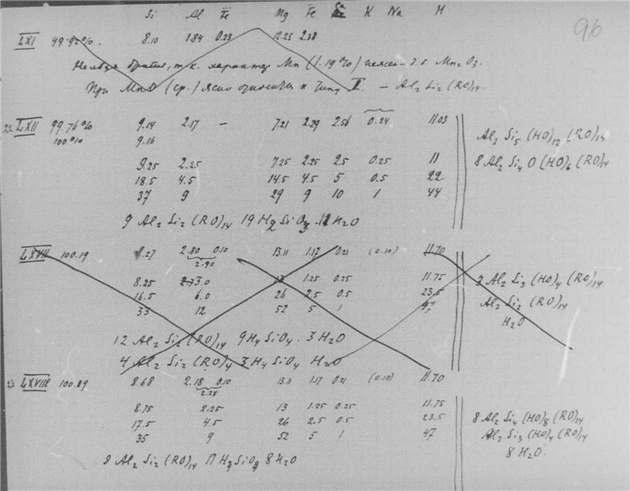 Si Al Fe Mg Fe Ca K Na H
96
LXI 99.92% 8.10 1.84 0.23 12.25 2.38
Нельзя брать, т.к. характер Mn (1.19%) неясен - м.б. Mn₂O₃.
При MnO (ср.) ясно относится к типу II. — Al₂ Si₂ (RO)₁₄.
LXII 99.76% 9.14 2.17 — 7.21 2.29 2.56 0.24 11.03
100% 9.16
9.25 2.25 7.25 2.25 2.5 0.25 11
18.5 4.5 14.5 4.5 5 0.5 22
37 9 29 9 10 1 44
Al₂ Si₅ (HO)₁₂ (RO)₁₄
8 Al₂ Si₄ O (HO)₆ (RO)₁₄
9 Al₂ Si₂ (RO)₁₄ 19 H₂SiO₃ H₂O
100.19 8.27 2.80 0.10 13.11 1.17 0.21 (0.10) 11.70
2.90
8.25 3.0 13 1.25 0.25 11.75
16.5 6.0 26 2.5 0.5 23.5
33 12 52 5 1 47
Al₂ Si₃ (HO)₄ (RO)₁₄
Al₂ Si₂ (RO)₁₄
H₂O
12 Al₂ Si₂ (RO)₁₄ 9 H₄ SiO₄ . 3 H₂O
4 Al₂ Si₂ (RO)₁₄ 3 H₄ SiO₄ H₂O
LXVIII 100.89 8.68 2.18 0.10 13.11 1.17 0.21 (0.10) 11.70
2.28
8.75 2.25 13 1.25 0.25 11.75
17.5 4.5 26 2.5 0.5 23.5
35 9 52 5 1 47
8 Al₂ Si₄ (HO)₈ (RO)₁₄
Al₂ Si₃ (HO)₄ (RO)₁₄
8 H₂O.
9 Al₂ Si₂ (RO)₁₄ 17 H₂SiO₃ 8 H₂O